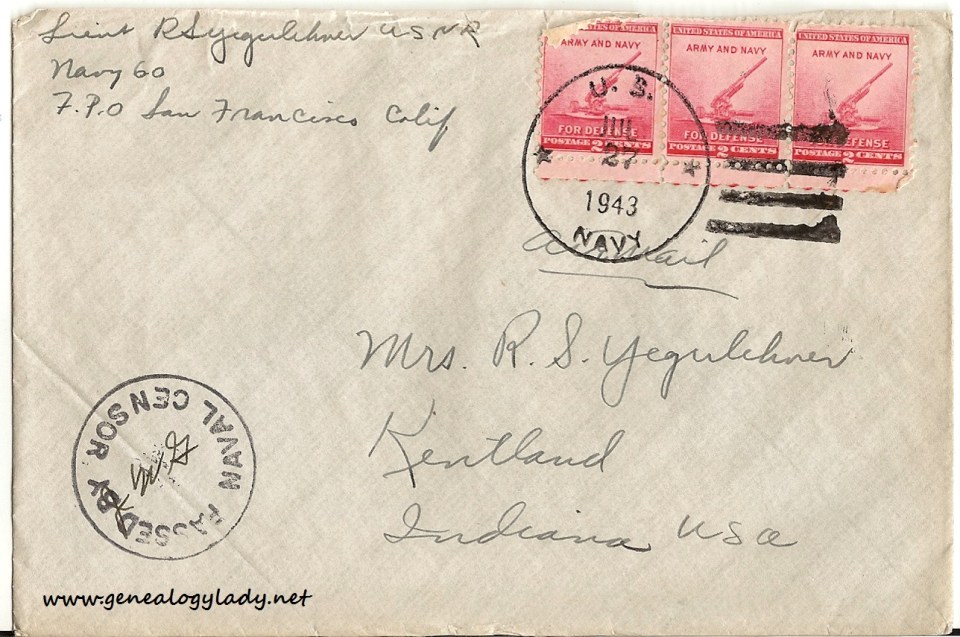 Lieut R S Yegerlehner USNR
Navy 60
F.P.O San Francisco Calif
UNITED STATES OF AMERICA
ARMY AND NAVY
FOR DEFENSE
POSTAGE 2 CENTS
UNITED STATES OF AMERICA
ARMY AND NAVY
FOR DEFENSE
POSTAGE 2 CENTS
UNITED STATES OF AMERICA
ARMY AND NAVY
DEFENSE
POSTAGE 2 CENTS
U. S.
JUL
27
1943
NAVY
Air Mail
Mrs. R. S. Yegerlehner
Kentland
Indiana USA
PASSED BY NAVAL CENSOR
www.genealogylady.net